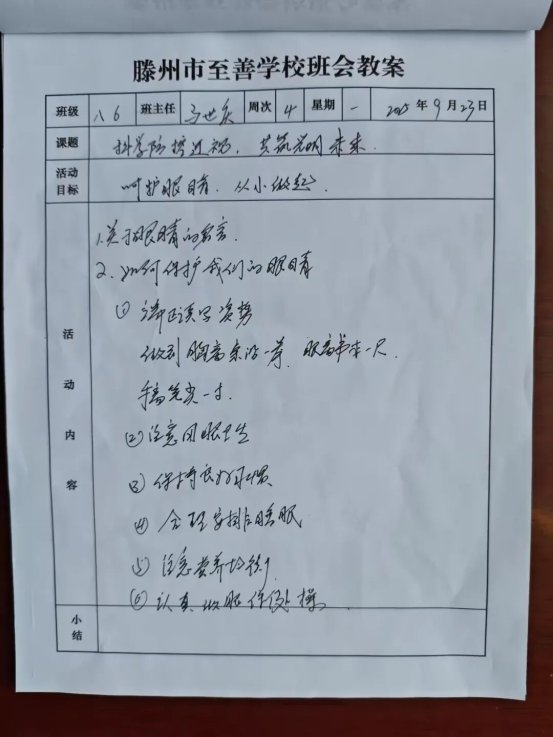 滕州市至善学校班会教案
班级 八6 班主任 马世庆 周次 4 星期 一 2025年9月23日
课题 科学防控近视，共筑光明未来.
活动目标 呵护眼睛，从小做起.
活动内容
1.关于眼睛的名言.
2、如何保护我们的眼睛
① 端正读写姿势
做到胸离桌沿一拳，眼离书本一尺.
手离笔尖一寸.
② 注意用眼卫生
③ 保持良好习惯
④ 合理安排睡眠
⑤ 注意营养均衡
⑥ 认真做眼保健操。
小结